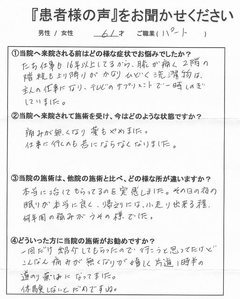 『患者様の声』をお聞かせください
男性 / 女性 61才 ご職業(パート)
①当院へ来院される前はどの様な症状でお悩みでしたか?
たち仕事も16年以上してるから、膝が痛く2階の
階段も上り降りがかなりひどく洗濯物は、
主人の仕事になり、テレビのサプリメントで一時しのぎを
していました。
②当院へ来院されて施術を受け、今はどのような状態ですか?
痛みが無くなり薬もやめました。
仕事に行くのも苦にならなくなりました。
③当院の施術は、他院の施術と比べ、どの様な所が違いますか?
本当に治してもらってるのを実感しました。その日の夜の
眠りが本当に良く、帰りには、小走り出来る様、
何年間の痛みがうその様でした。
④どういった方に当院の施術がお勧めですか?
一回だけ紹介してもらったので行こうと思ってたけど
こんなに痛みが無くなりが嬉しく片道1時半の
道のり苦痛になってました。
体験しないとだめですね。